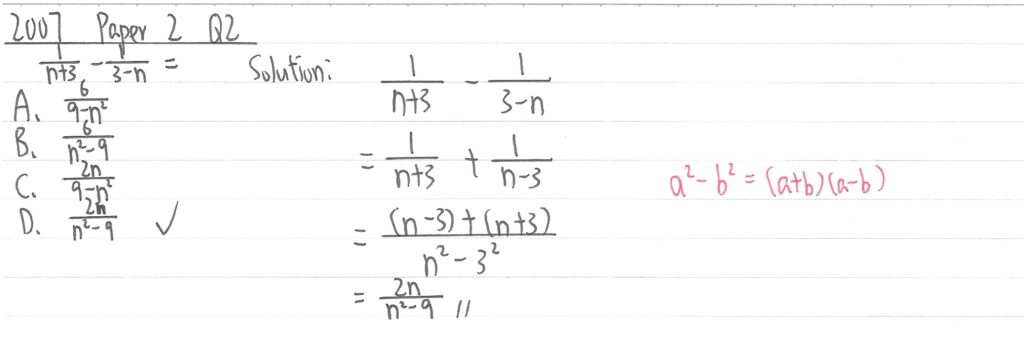 2007 Paper 2 Q2
1/(n+3) - 1/(3-n) =
A. 6/(9-n²)
B. 6/(n²-9)
C. 2n/(9-n²)
D. 2n/(n²-9) ✓
Solution: 1/(n+3) - 1/(3-n)
= 1/(n+3) + 1/(n-3)
= ((n-3)+(n+3))/(n²-3²)
= 2n/(n²-9) //
a²-b² = (a+b)(a-b)